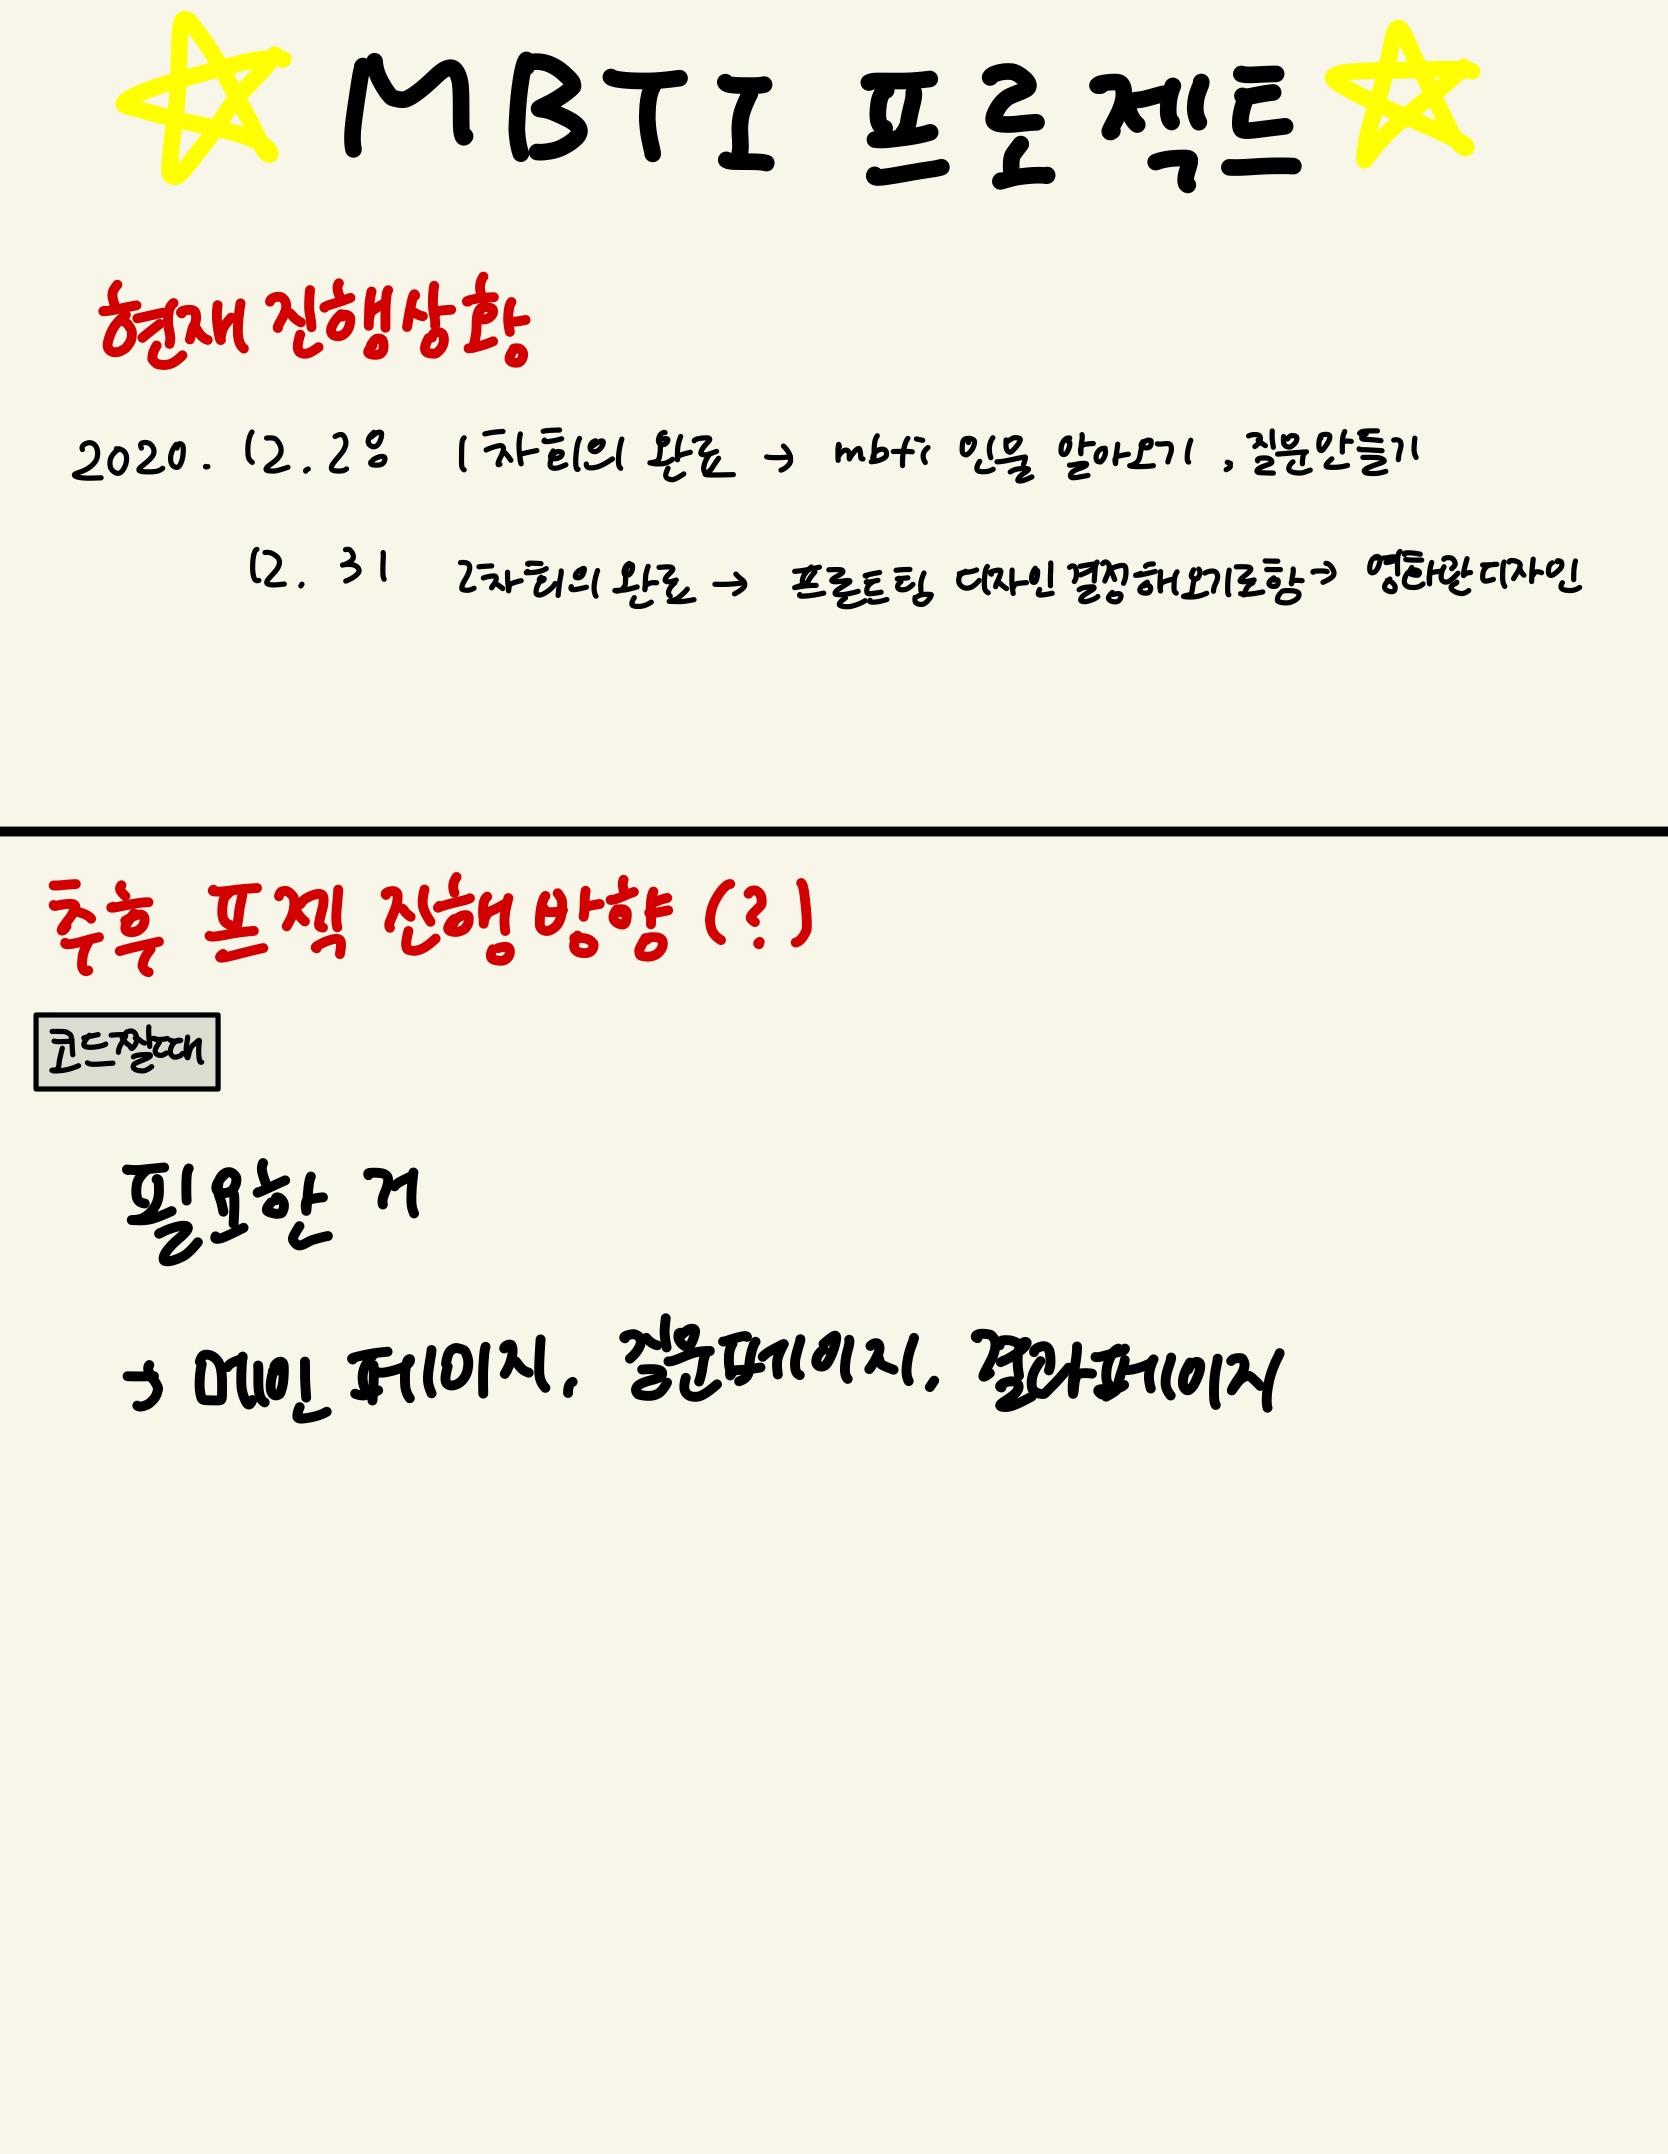 MBTI 프로젝트
현재 진행상황
2020. 12. 28 1차회의 완료 → mbti 인물 알아오기, 질문만들기
12. 31 2차회의 완료 → 프론트팀 디자인 결정해오기로함 → 영화관디자인
추후 프젝 진행 방향 (?)
코드짤때
필요한 거
→ 메인 페이지, 질문페이지, 결과페이지